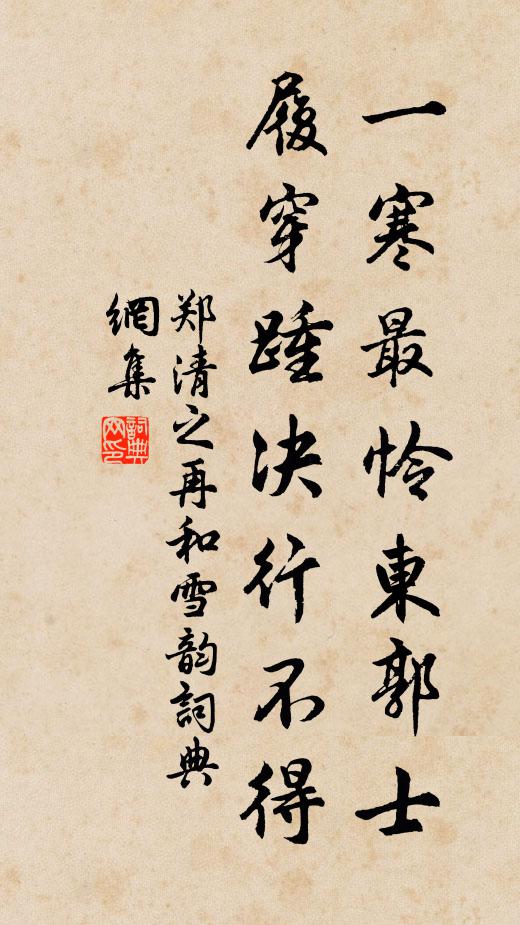 一寒最怜東郭士
履穿踵决行不得
郑清之再和雪韵詞典
網集
詞典網印